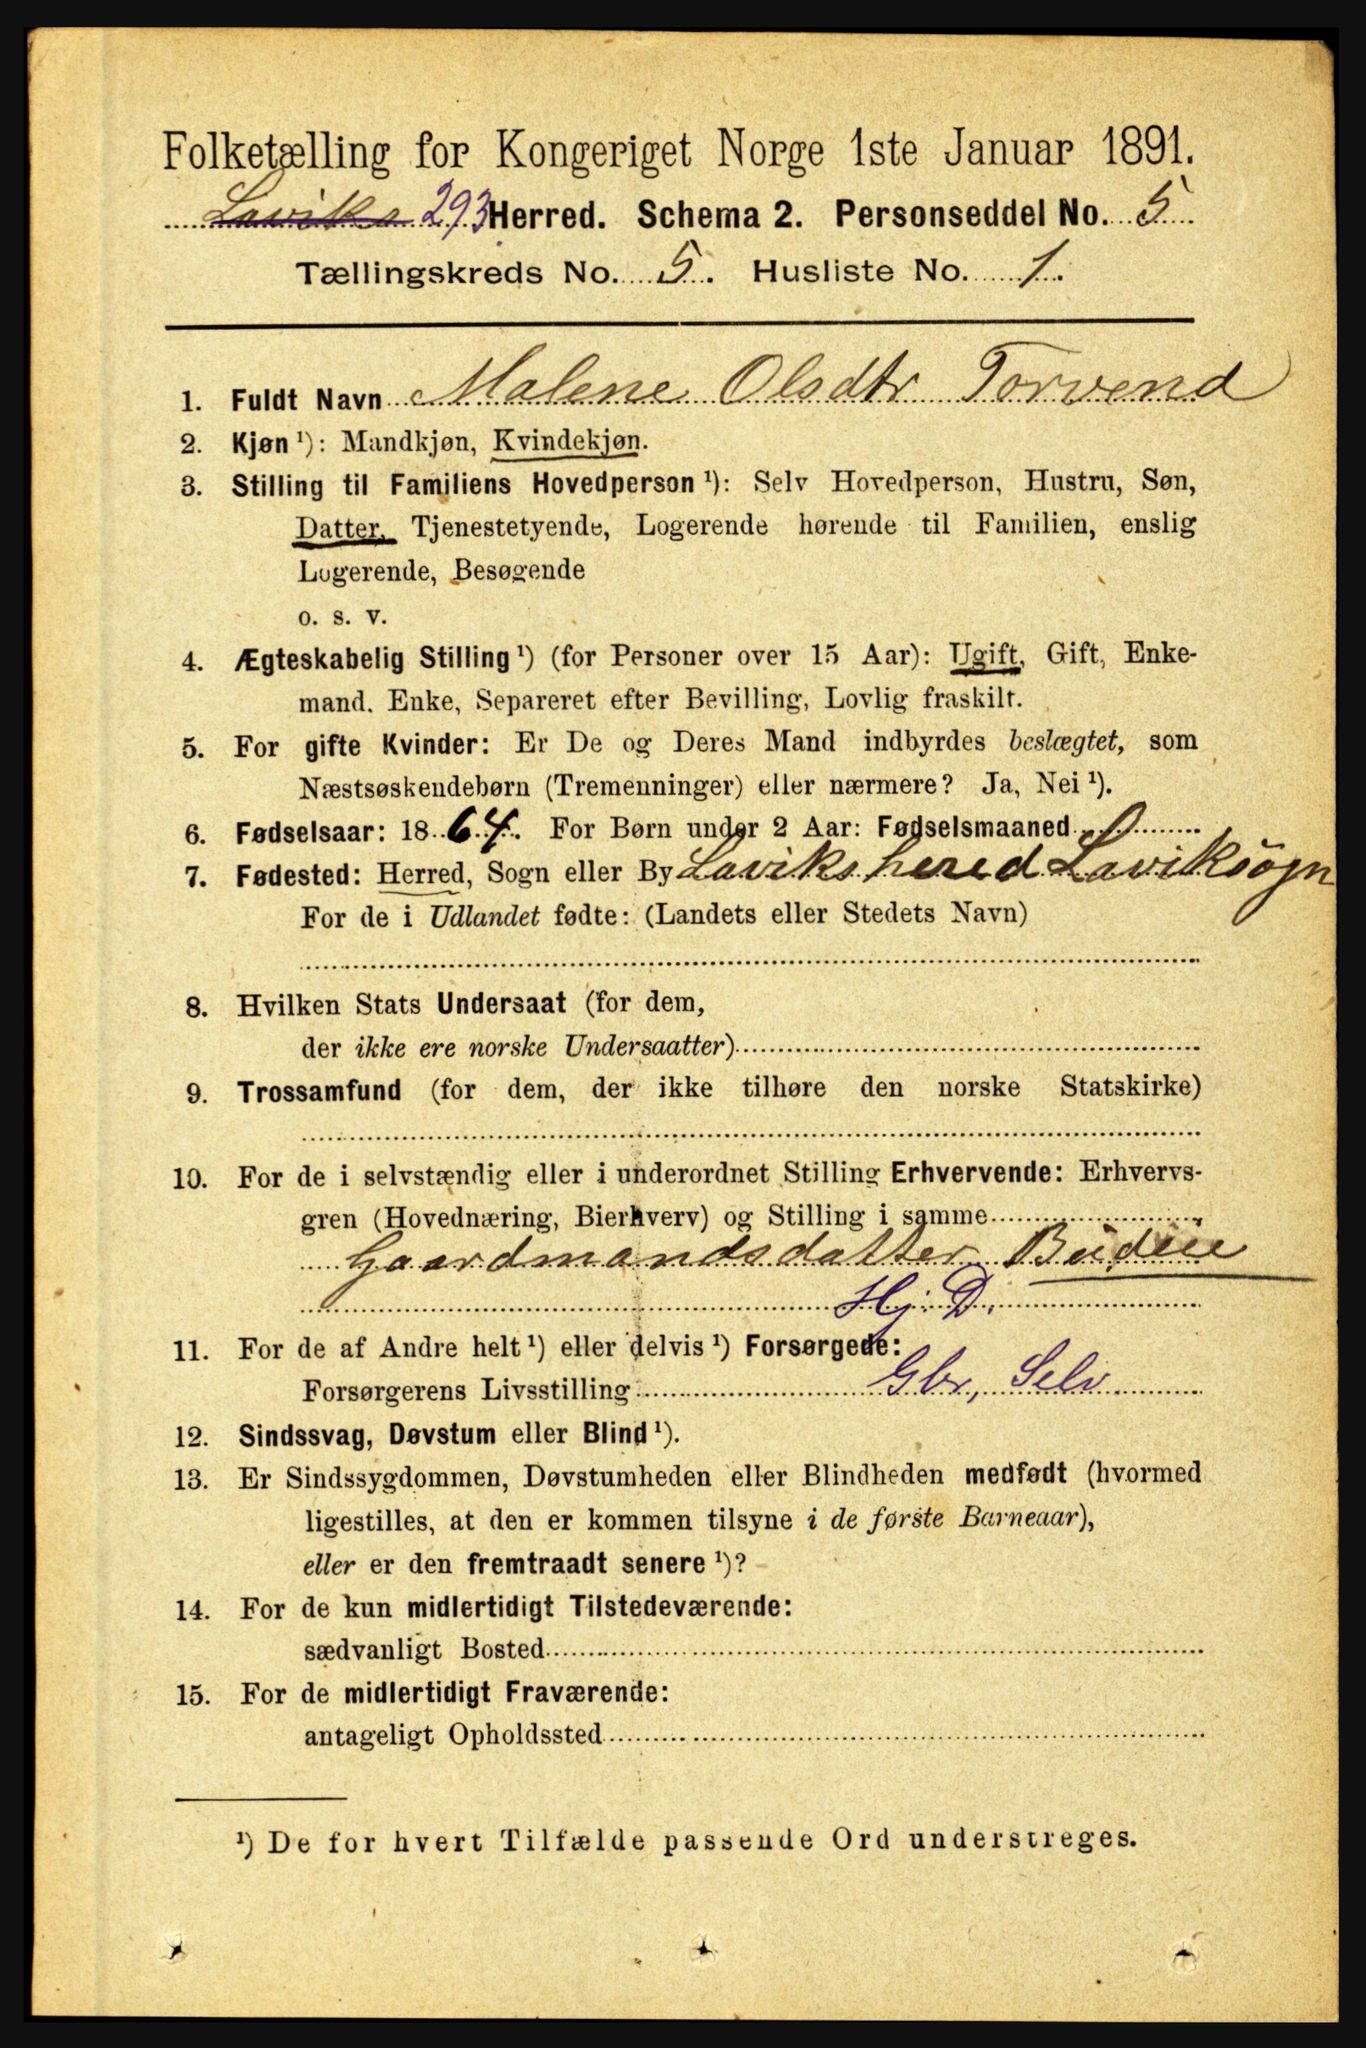 Folketælling for Kongeriget Norge 1ste Januar 1891.
Laviks 293 Herred. Schema 2. Personseddel No. 5
Tællingskreds No. 5. Husliste No. 1.
1. Fuldt Navn Malene Olsdtr Torvend
2. Kjøn ¹): Mandkjøn, Kvindekjøn.
3. Stilling til Familiens Hovedperson ¹): Selv Hovedperson, Hustru, Søn,
Datter, Tjenestetyende, Logerende hørende til Familien, enslig
Logerende, Besøgende
o. s. v.
4. Ægteskabelig Stilling ¹) (for Personer over 15 Aar): Ugift, Gift, Enke-
mand, Enke, Separeret efter Bevilling, Lovlig fraskilt.
5. For gifte Kvinder: Er De og Deres Mand indbyrdes beslægtet, som
Næstsøskendebørn (Tremenninger) eller nærmere? Ja, Nei ¹).
6. Fødselsaar: 1864. For Børn under 2 Aar: Fødselsmaaned 0
7. Fødested: Herred, Sogn eller By Laviks hered Laviksogn
For de i Udlandet fødte: (Landets eller Stedets Navn)
8. Hvilken Stats Undersaat (for dem,
der ikke ere norske Undersaatter)
9. Trossamfund (for dem, der ikke tilhøre den norske Statskirke)
10. For de i selvstændig eller i underordnet Stilling Erhvervende: Erhvervs-
gren (Hovednæring, Bierhverv) og Stilling i samme
Gaardmandsdatter Budeie
Hj. D.
11. For de af Andre helt ¹) eller delvis ¹) Forsørgede:
Forsørgerens Livsstilling Gbr, Selv
12. Sindssvag, Døvstum eller Blind ¹).
13. Er Sindssygdommen, Døvstumheden eller Blindheden medfødt (hvormed
ligestilles, at den er kommen tilsyne i de første Barneaar),
eller er den fremtraadt senere ¹)?
14. For de kun midlertidigt Tilstedeværende:
sædvanligt Bosted
15. For de midlertidigt Fraværende:
antageligt Opholdssted
¹) De for hvert Tilfælde passende Ord understreges.